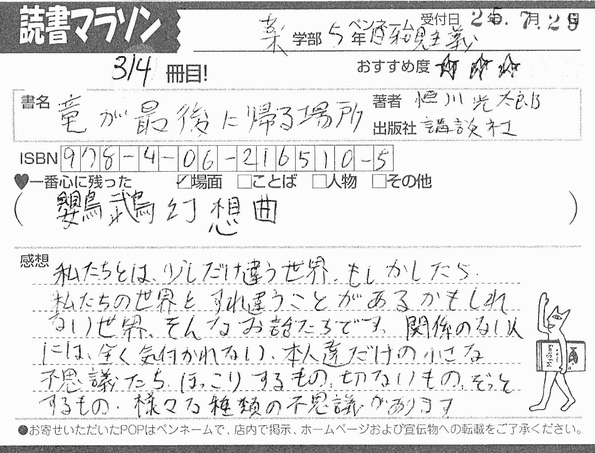 読書マラソン
薬学部5年 ペンネーム 日和見主義 受付日 25.7.29
314冊目! おすすめ度 ☆☆☆
書名 竜が最後に帰る場所 著者 恒川光太郎
出版社 講談社
ISBN 978-4-06-216510-5
♥一番心に残った ☑場面 □ことば □人物 □その他
(鸚鵡幻想曲)
感想
私たちとは、少しだけ違う世界、もしかしたら、
私たちの世界とすれ違うことがあるかもしれ
ない世界、そんなお話たちです。関係のない人
には、全く気付かれない、本人達だけの小さな
不思議たち。ほっこりするもの、切ないもの、ぞっと
するもの、様々な種類の不思議があります
●お寄せいただいたPOPはペンネームで、店内で掲示、ホームページおよび宣伝物への転載をご了承ください。